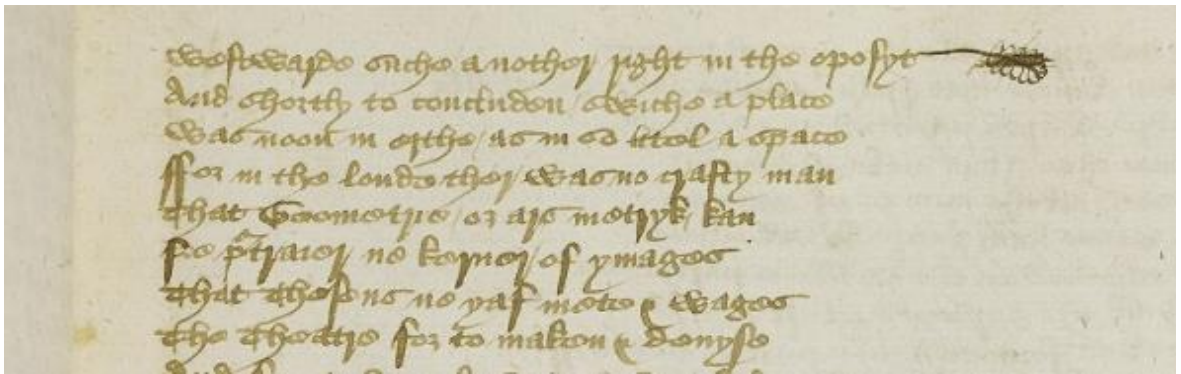 Westwarde suche a nother right in the oposyt
And shortly to concluden / swiche a place
Was noon in erthe / as in so litel a space
ffor in the londe ther was no crafty man
That Geometrie / or ars metryk / kan
Ne p<sup>a</sup>traier / ne keruer / of ymages
That Theseus ne yaf mete & wages
The Theatre for to maken & deuyse